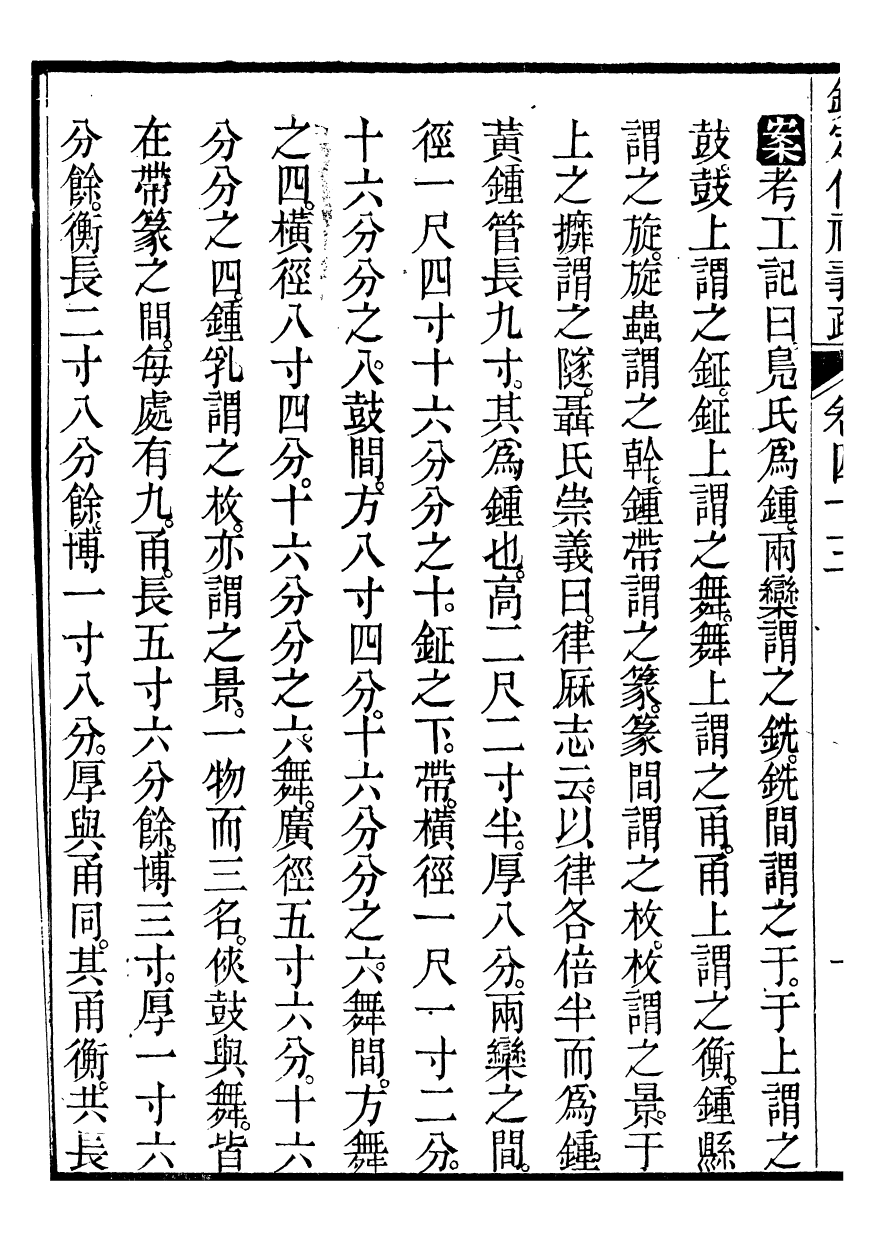 欽定儀禮義疏 卷四十三 一
案考工記曰鳧氏爲鍾。兩欒謂之銑。銑間謂之于。于上謂之
鼓。鼓上謂之鉦。鉦上謂之舞。舞上謂之甬。甬上謂之衡。鍾縣
謂之旋。旋蟲謂之幹。鍾帶謂之篆。篆間謂之枚。枚謂之景。于
上之攠謂之隧。聶氏崇義曰。律厤志云。以律各倍半而爲鍾。
黃鍾管長九寸。其爲鍾也。高二尺二寸半。厚八分。兩欒之間。
徑一尺四寸十六分分之十。鉦之下。帶。橫徑一尺一寸二分。
十六分分之八。鼓間。方八寸四分。十六分分之六。舞間。方舞
之四。橫徑八寸四分。十六分分之六。舞。廣徑五寸六分。十六
分分之四。鍾乳謂之枚。亦謂之景。一物而三名。俠鼓與舞。皆
在帶篆之間。每處有九。甬。長五寸六分餘。博三寸。厚一寸六
分餘。衡長二寸八分餘。博一寸八分。厚與甬同。其甬衡。共長